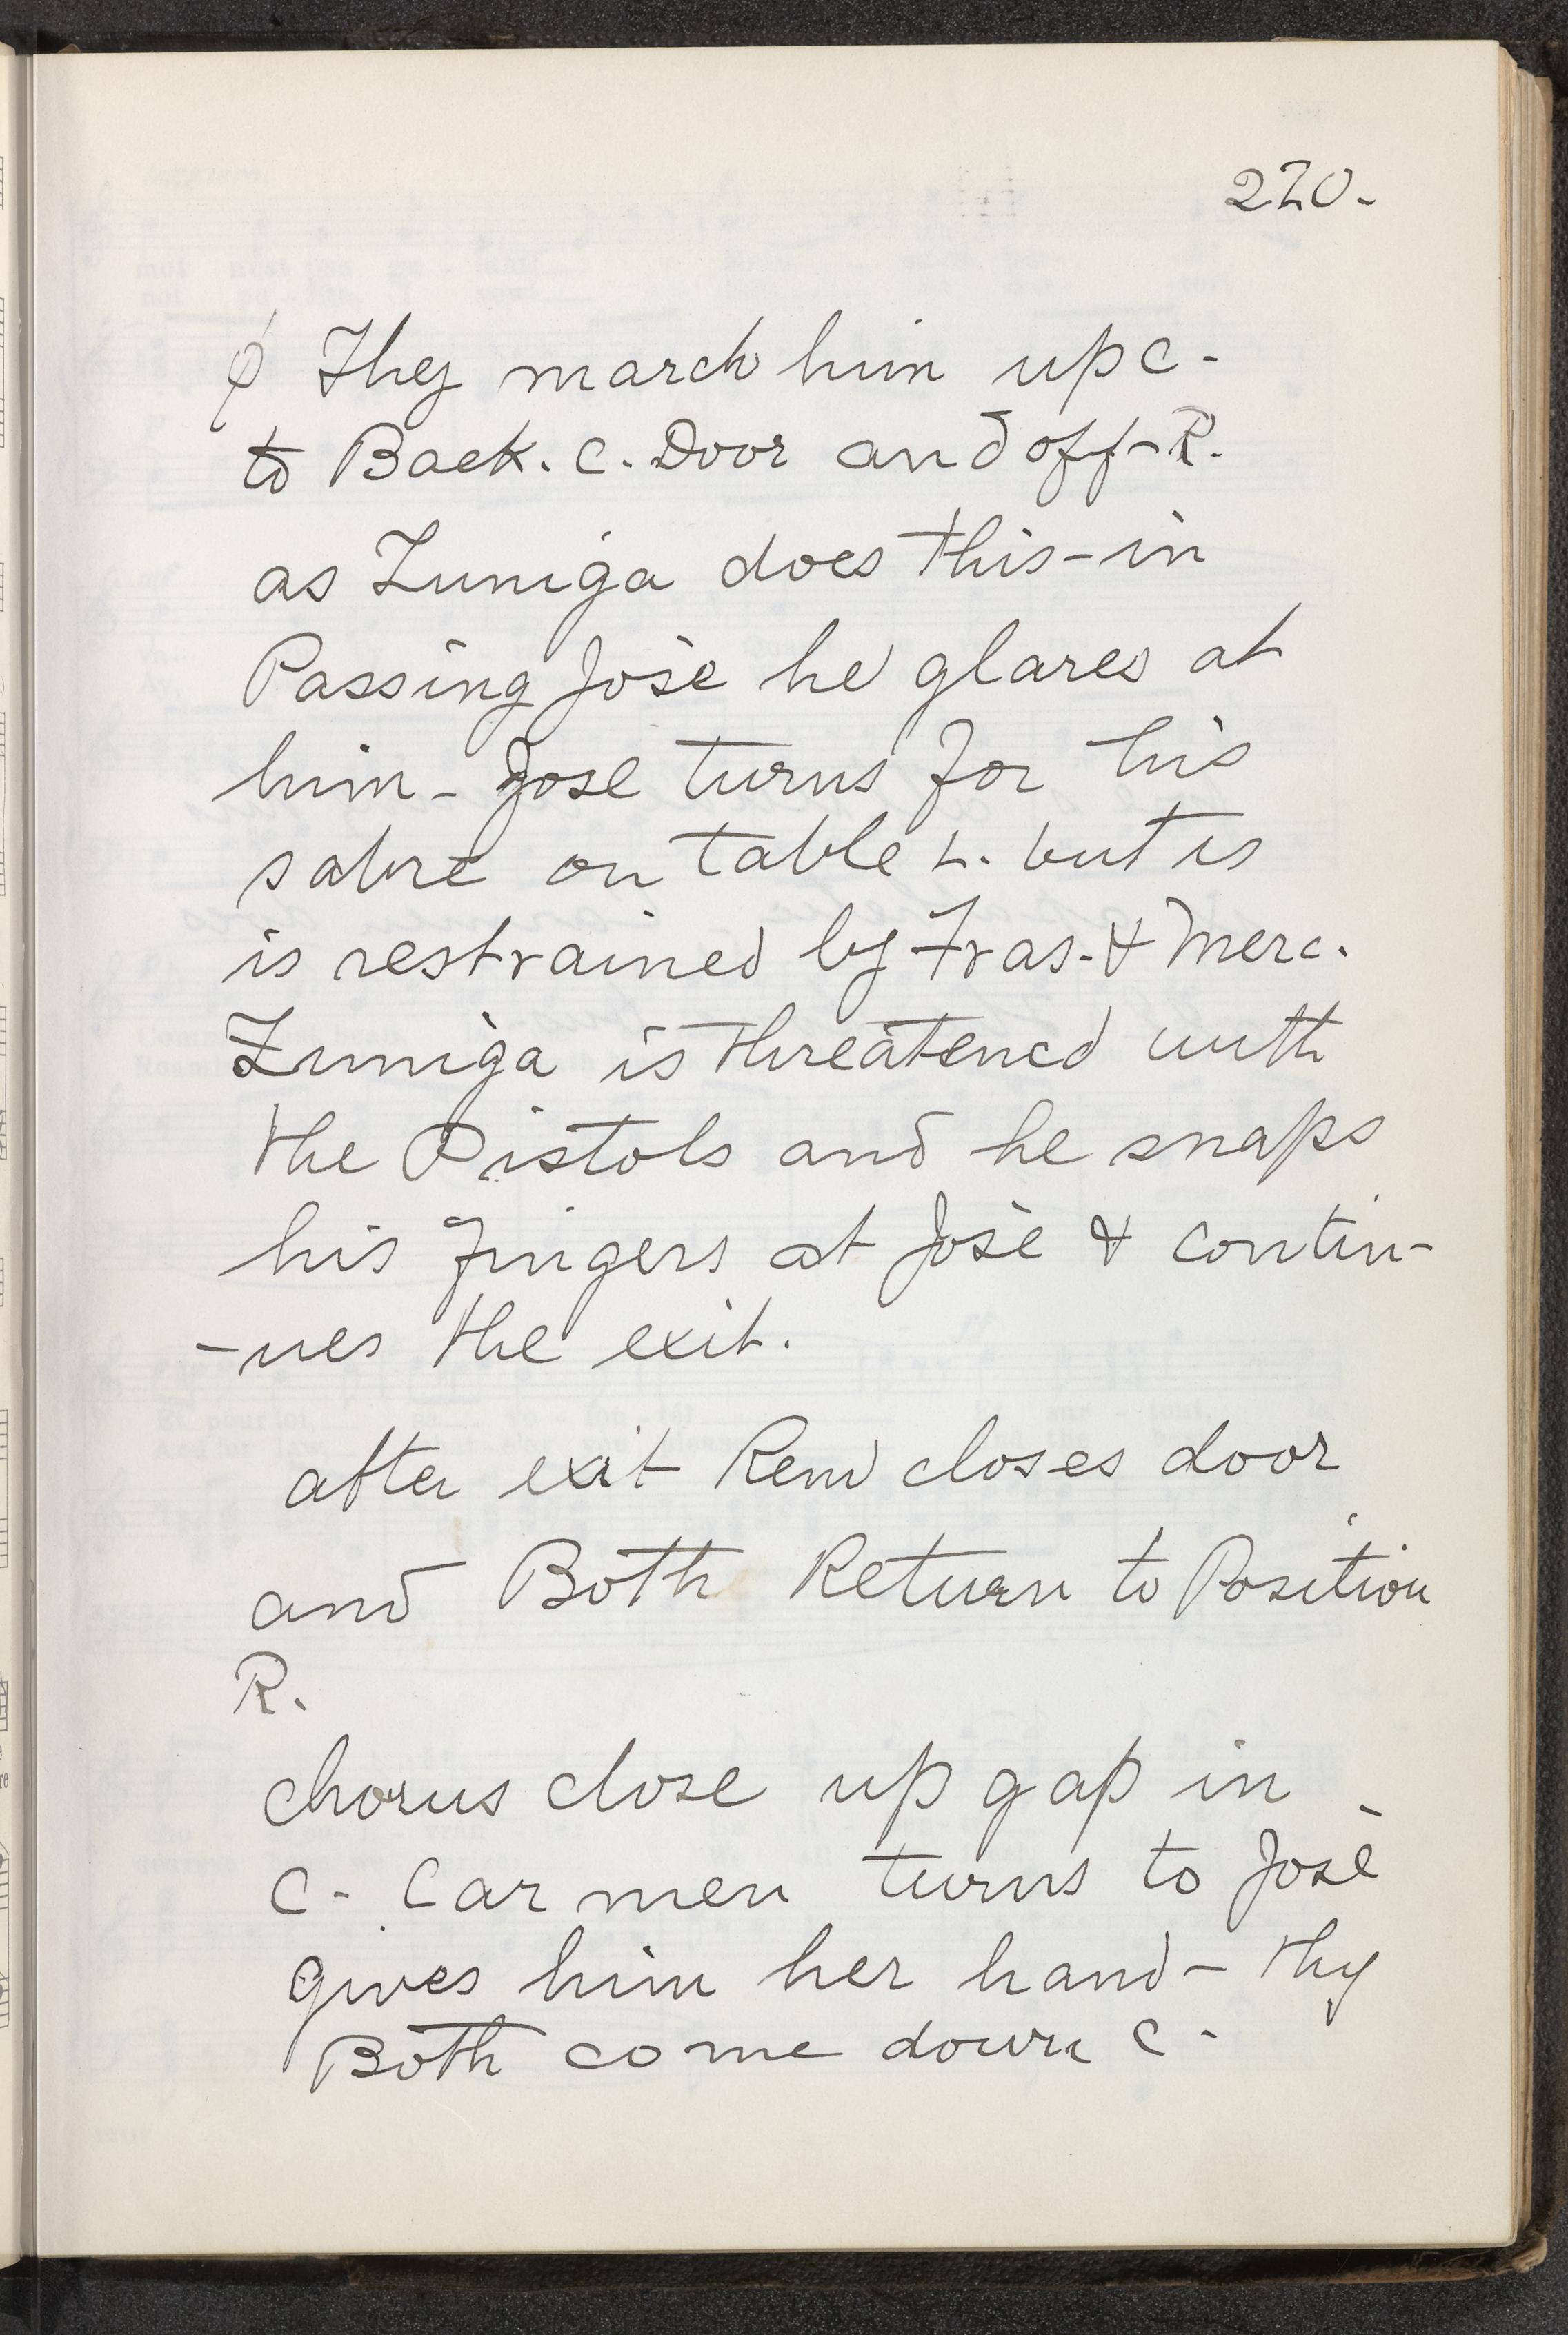 220.
φ They march him up c-
to Back. C. Door and off-R.
as Zuniga does this-in
Passing José he glares at
him- José turns for his
sabre on table L. but is
is restrained by Fras. & Merc.
Zuniga is threatened with
the Pistols and he snaps
his fingers at José & contin-
-ues the exit.
after exit Rem closes door
and Both Return to Position
R.
chorus close up gap in
C- Carmen turns to José
gives him her hand- they
Both come down C-